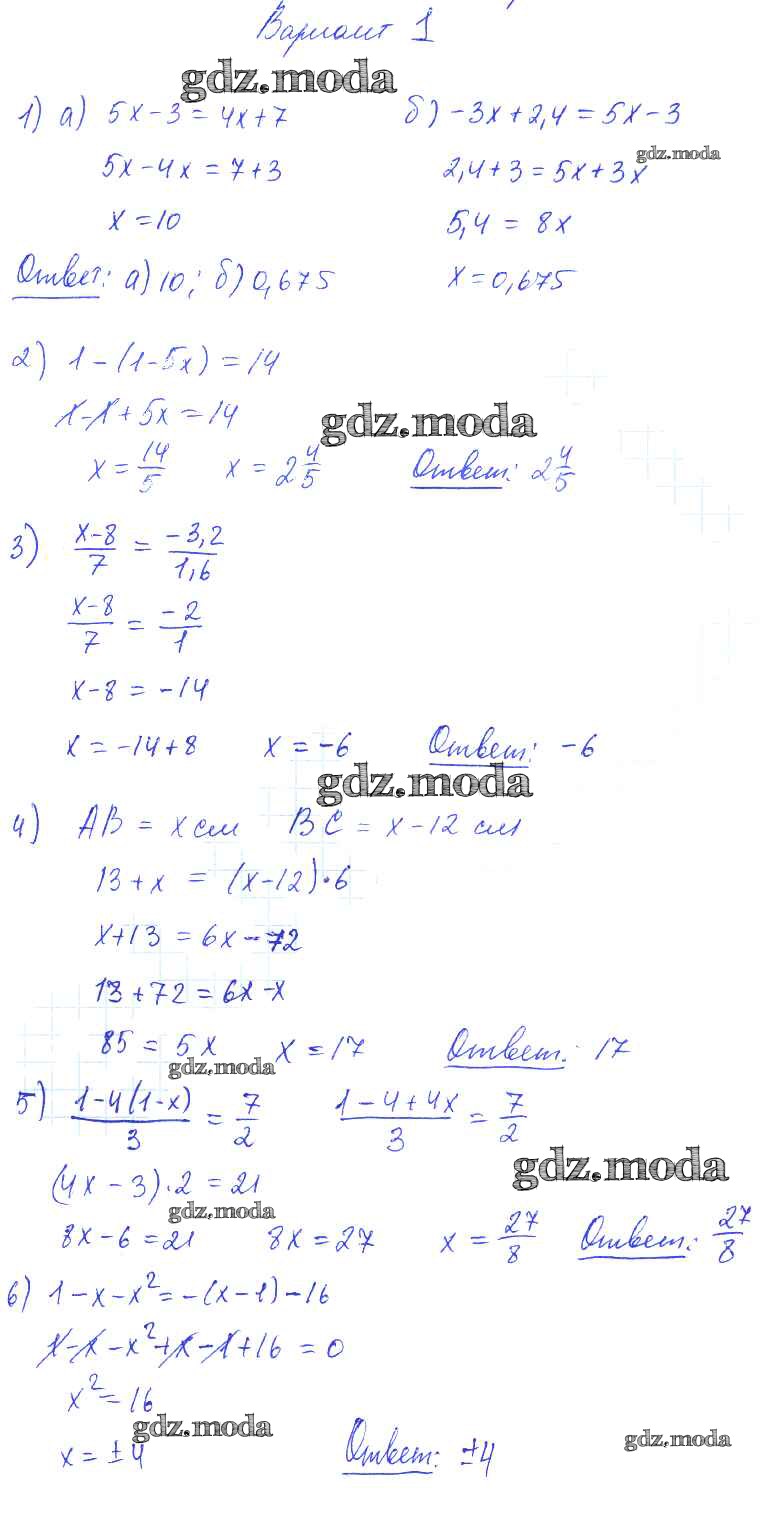 Вариант 1
gdz.moda
1) а) 5x-3=4x+7 б) -3x+2,4=5x-3
gdz.moda
5x-4x=7+3 2,4+3=5x+3x
x=10 5,4=8x
Ответ: а) 10; б) 0,675 x=0,675
2) 1-(1-5x)=14
1-1+5x=14
gdz.moda
x=14/5 x=2 4/5 Ответ: 2 4/5
3) (x-8)/7 = -3,2/1,6
(x-8)/7 = -2/1
x-8=-14
x=-14+8 x=-6 Ответ: -6
gdz.moda
4) AB = x см BC = x-12 см
13+x = (x-12)·6
x+13=6x-72
13+72=6x-x
85=5x x=17 Ответ: 17
gdz.moda
5) (1-4(1-x))/3 = 7/2 (1-4+4x)/3 = 7/2
gdz.moda
(4x-3)·2=21
gdz.moda
8x-6=21 8x=27 x=27/8 Ответ: 27/8
6) 1-x-x²=-(x-1)-16
1-x-x²+x-1+16=0
x²=16
gdz.moda
x=±4 Ответ: ±4
gdz.moda